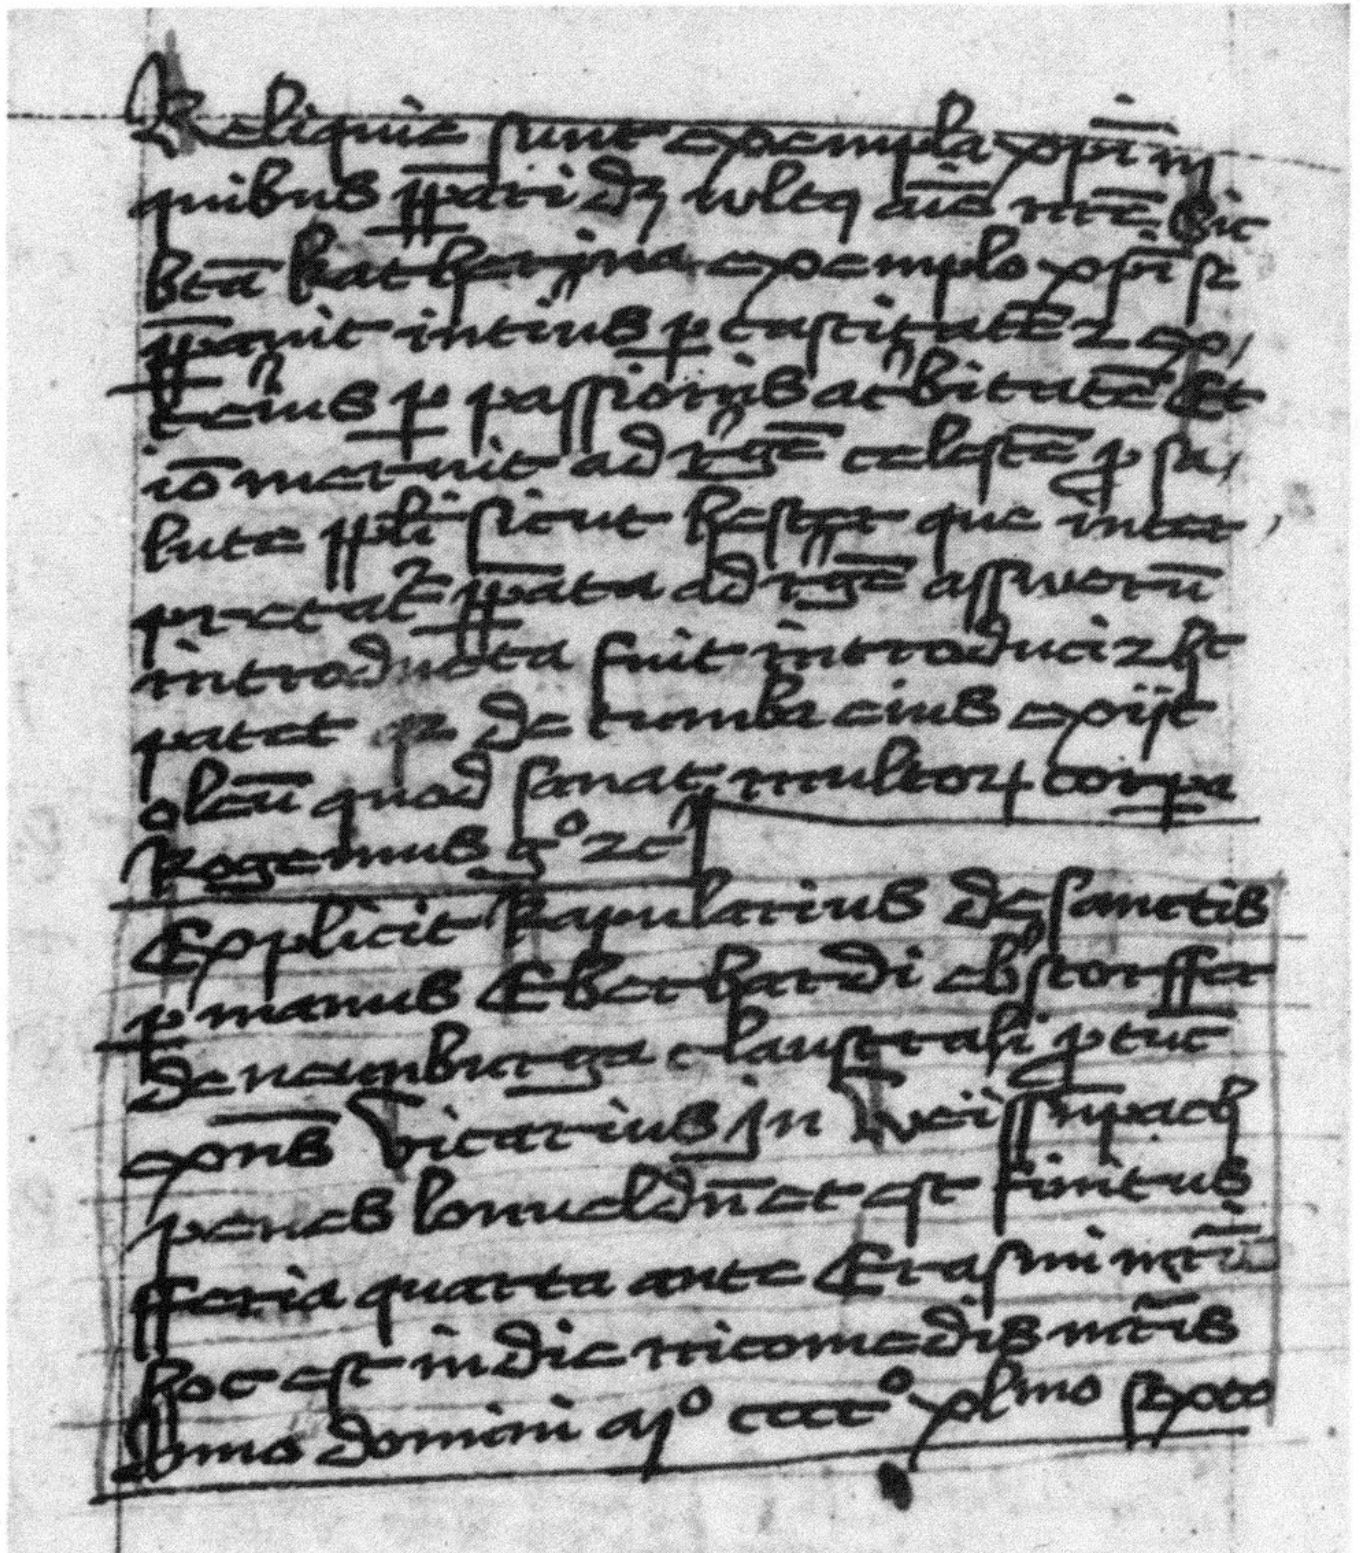 Reliquie sunt exempla xp̄i in
quibus p̄pari dꝫ wltꝯ aīe nr̄e Sic
btā katherina exemplo xp̄i se
p̄pauit intius ꝑ castitatē ⁊ ex
teius ꝑ passionis acbitatē Et
iō meruit ad rgē celestē ꝓ sa
lute ppli sicut hester que inter
pretat p̄pata ad rgē asswerū
introducta fuit introduci ⁊ hͨ
patet qꝛ de tumba eius exijt
oleū quod sanat multoꝝ corꝑa
Rogemus gͦ ⁊c
Explicit Rapularius de sanctis
ꝑ manus Eberhardi ebstorffer
de neumburga claustrali ꝓ tūc
exn̄s Vicarius Jn Weissnpach
penes lonueldn̄ et est finitus
fferia quarta ante Erasmi mr̄is
hoc est in die nicomedis mr̄is
Anno domini Mͦ ccccͦ xlmo sexto